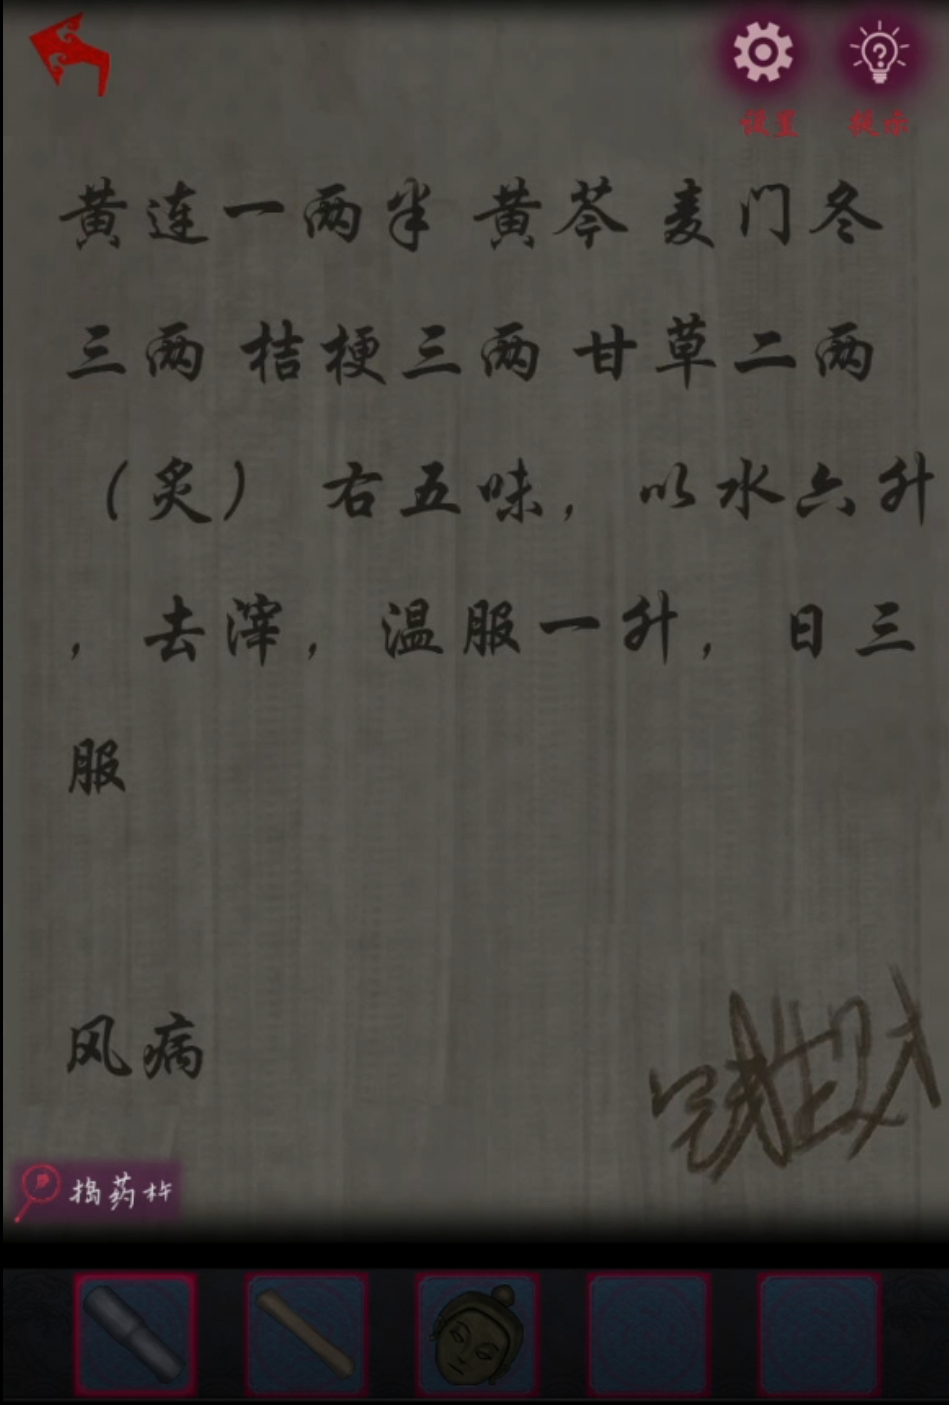 设置 提示
黄连一两半 黄芩 麦门冬
三两 桔梗三两 甘草二两
（炙） 右五味，以水六升
，去滓，温服一升，日三
服
风病
捣药杵